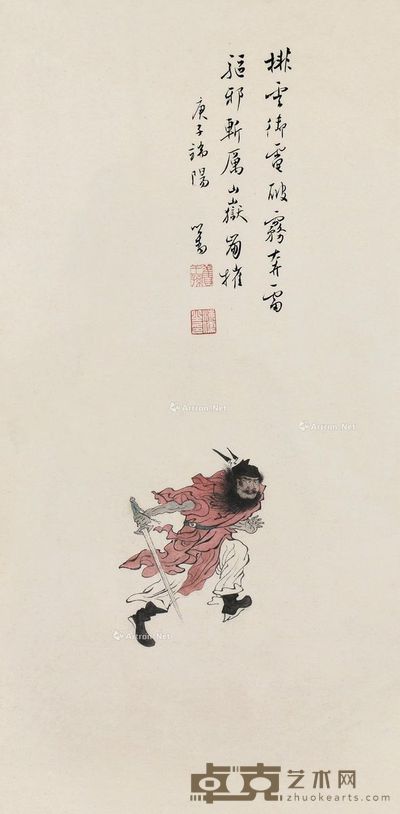 排雲御電破霧奔雷
驅邪斬厲山嶽崩摧
庚子端陽
心畬
Artron.Net
Artron.Net
Artron.Net
卓克艺术网
zhuokearts.com